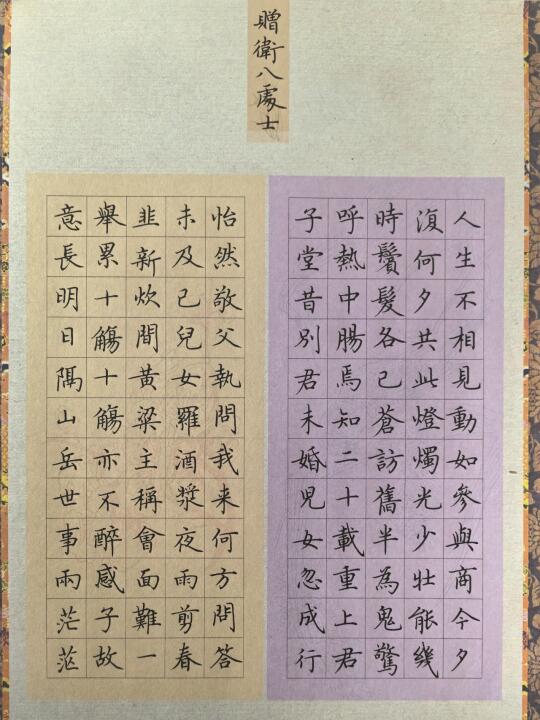 贈衛八處士
人生不相見動如參與商今夕
復何夕共此燈燭光少壯能幾
時鬢髮各已蒼訪舊半為鬼驚
呼熱中腸焉知二十載重上君
子堂昔別君未婚兒女忽成行
怡然敬父執問我来何方問答
未及已兒女羅酒漿夜雨剪春
韭新炊間黃粱主稱會面難一
舉累十觴十觴亦不醉感子故
意長明日隔山岳世事兩茫茫